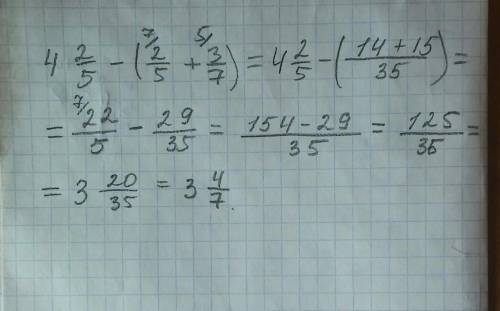 4 2/5 − (⁷⁄ 2/5 + ⁵⁄ 3/7) = 4 2/5 − (14 + 15)/35 =
= ⁷⁄ 22/5 − 29/35 = (154 − 29)/35 = 125/35 =
= 3 20/35 = 3 4/7.